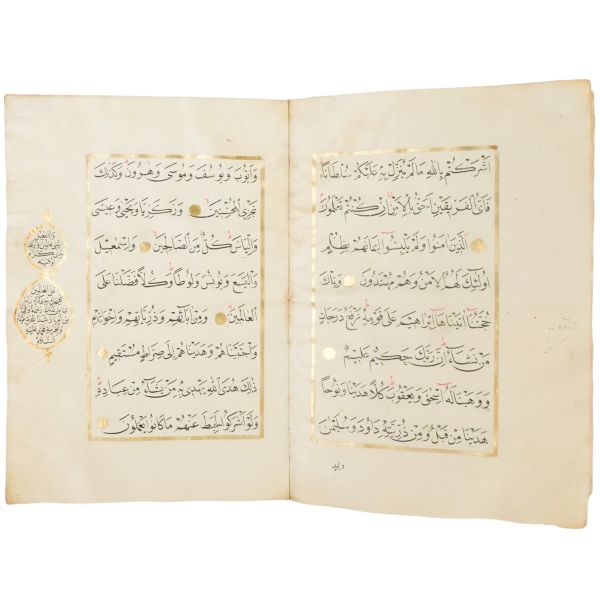 اَشْرَكْتُمْ بِاللّٰهِ مَا لَمْ يُنَزِّلْ بِهِ عَلَيْكُمْ سُلْطَانًا
فَاَيُّ الْفَرِيقَيْنِ اَحَقُّ بِالْاَمْنِ اِنْ كُنْتُمْ تَعْلَمُونَ
اَلَّذِينَ اٰمَنُوا وَلَمْ يَلْبِسُوا اِيمَانَهُمْ بِظُلْمٍ
اُولٰئِكَ لَهُمُ الْاَمْنُ وَهُمْ مُهْتَدُونَ وَتِلْكَ
حُجَّتُنَا اٰتَيْنَاهَا اِبْرٰهِيمَ عَلٰى قَوْمِهِ نَرْفَعُ دَرَجَاتٍ
مَنْ نَشَاءُ اِنَّ رَبَّكَ حَكِيمٌ عَلِيمٌ
وَوَهَبْنَا لَهُ اِسْحٰقَ وَيَعْقُوبَ كُلًّا هَدَيْنَا وَنُوحًا
هَدَيْنَا مِنْ قَبْلُ وَمِنْ ذُرِّيَّتِهِ دَاوُدَ وَسُلَيْمٰنَ
وَاَيُّوبَ وَيُوسُفَ وَمُوسٰى وَهٰرُونَ وَكَذٰلِكَ
نَجْزِي الْمُحْسِنِينَ وَزَكَرِيَّا وَيَحْيٰى وَعِيسٰى
وَاِلْيَاسَ كُلٌّ مِنَ الصَّالِحِينَ وَاِسْمٰعِيلَ
وَالْيَسَعَ وَيُونُسَ وَلُوطًا وَكُلًّا فَضَّلْنَا عَلَى
الْعَالَمِينَ وَمِنْ اٰبَائِهِمْ وَذُرِّيَّاتِهِمْ وَاِخْوَانِهِمْ
وَاجْتَبَيْنَاهُمْ وَهَدَيْنَاهُمْ اِلٰى صِرَاطٍ مُسْتَقِيمٍ
ذٰلِكَ هُدَى اللّٰهِ يَهْدِي بِهِ مَنْ يَشَاءُ مِنْ عِبَادِهِ
وَلَوْ اَشْرَكُوا لَحَبِطَ عَنْهُمْ مَا كَانُوا يَعْمَلُونَ